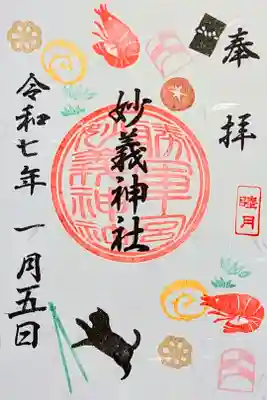 奉拝
睦月
妙義神社
令和七年 一月五日